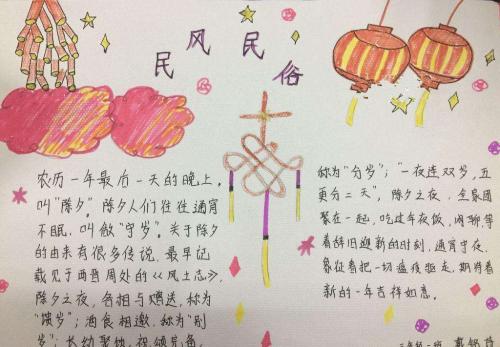 民风民俗
农历一年最后一天的晚上，
叫“除夕”。除夕人们往往通宵
不眠，叫做“守岁”。关于除夕
的由来有很多传说，最早记
载见于西晋周处的《风土志》，
除夕之夜，各相与赠送，称为
“馈岁”；酒食相邀，称为“别
岁”；长幼聚饮，祝颂完备，
称为“分岁”；“一夜连双岁，五
更分二天”，除夕之夜，全家团
聚在一起，吃过年夜饭，闲聊等
着辞旧迎新的时刻，通宵守夜，
象征着把一切瘟疫驱走，期待着
新的一年吉祥如意。